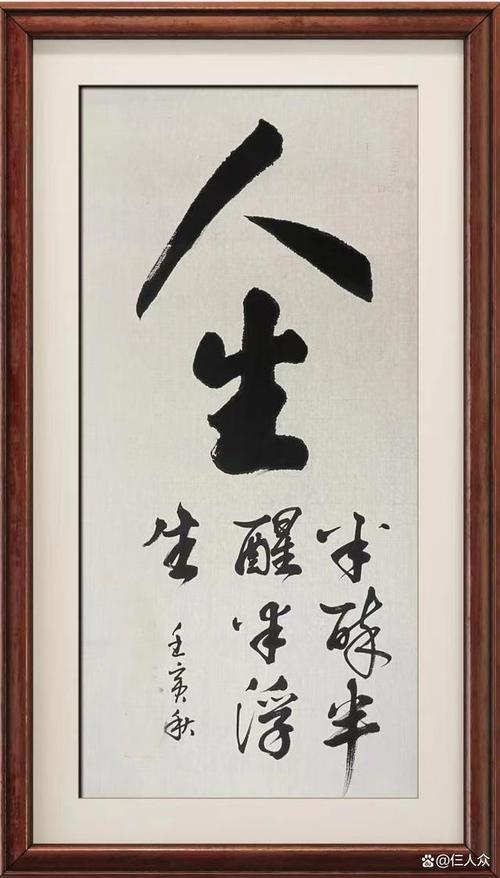 人生
半醉半
醒半浮
生
壬寅秋
@仨人众